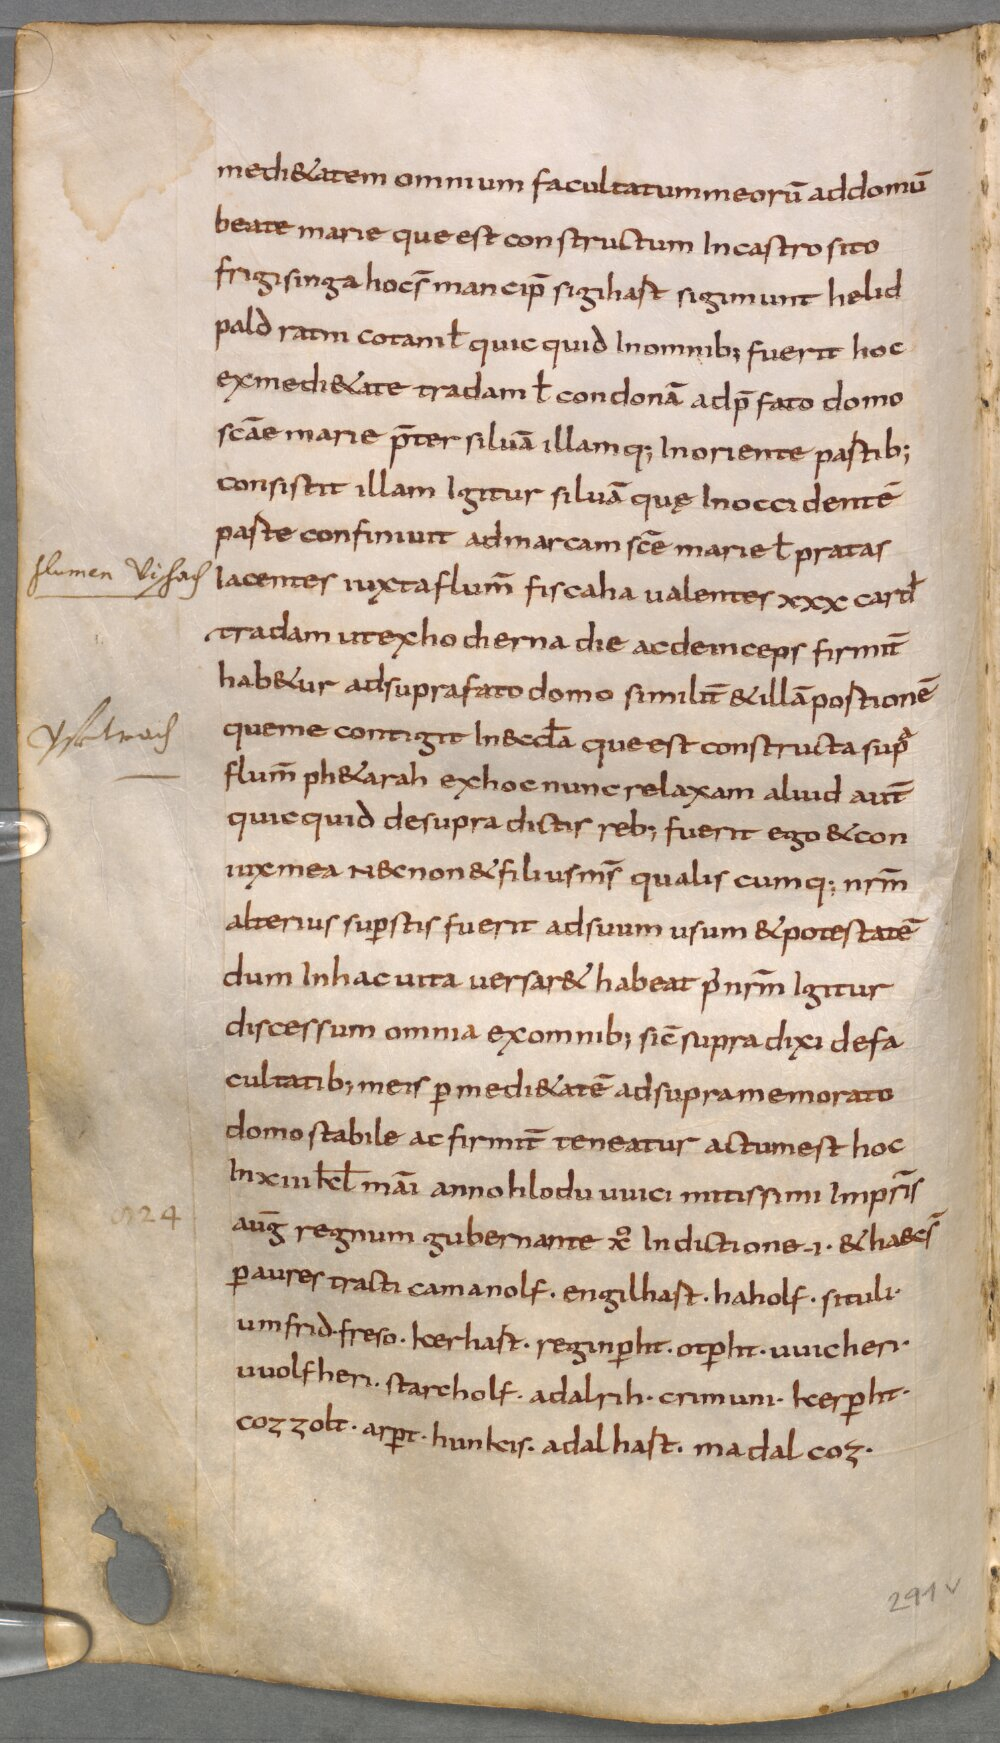 medi&atem omnium facultatum meorū ad domū
beate marie que est constructum In castro sito
frigisinga hoc s̄ mancip̄ sigihast sigimunt helid
pald ratni cotani ł quic quid In omnib; fuerit hoc
ex medi&ate tradam ł condonā ad p̄fato domo
scāe marie p̄ter siluā illam q; In oriente pastib;
consistit illam Igitur siluā quę In occidentē
paste confiniuit ad marcam scē marie ł pratas
flumen Vischach
Iacentes iuxta flum̄ fiscaha ualentes xxx card̄
tradam ut ex hodierna die ac deinceps firmit̄
hab&ur ad suprafato domo similit̄ & illā postionē
que me contigit In &ccł̄a que est constructa supͣ
flum̄ ph&arah ex hoc nunc relaxam aliud aut̄
quic quid de supra dictis reb; fuerit ego & con
iux mea N&c non & filius ms̄ qualis cumq; nrm̄
alterius sup̱stis fuerit ad suum usum & potestatē
dum In hac uita uersar& habeat p̓ nrm̄ Igitur
discessum omnia ex omnib; sic̄ supra dixi de fa
cultatib; meis p̱ medi&atē ad supra memorato
domo stabile ac firmit̄ teneatur actum est hoc
In xiii kł māi anno hlodu uuici mitissimi Impr̄is
824
auḡ regnum gubernante xꝰ Indictione .ı. & haec s̄
p̱ aures tracti camanolf . engilhast . haholf . situli .
umfrid . freso . kerhast . regинp̱ht . otp̱ht . uuicheri .
uuolfheri . starcholf . adalrih . crimuni . kerp̱ht .
cozzolt . arp̱t . hunkis . adalhast . madalcoz .
291v